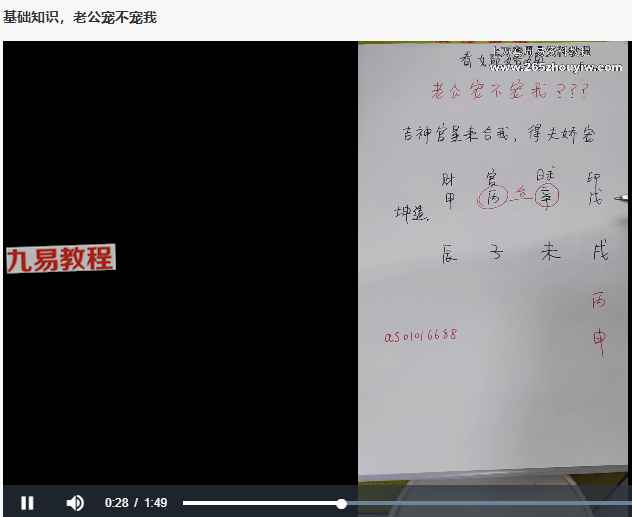 基础知识，老公宠不宠我
www.265zhouyiw.com
老公宠不宠我???
吉神官星来合我，得夫娇宠
财 官 日主 印
甲 丙 合 辛 戊
坤造
辰 子 未 戌
丙
申
aS01016688
九易教程
0:28 / 1:49